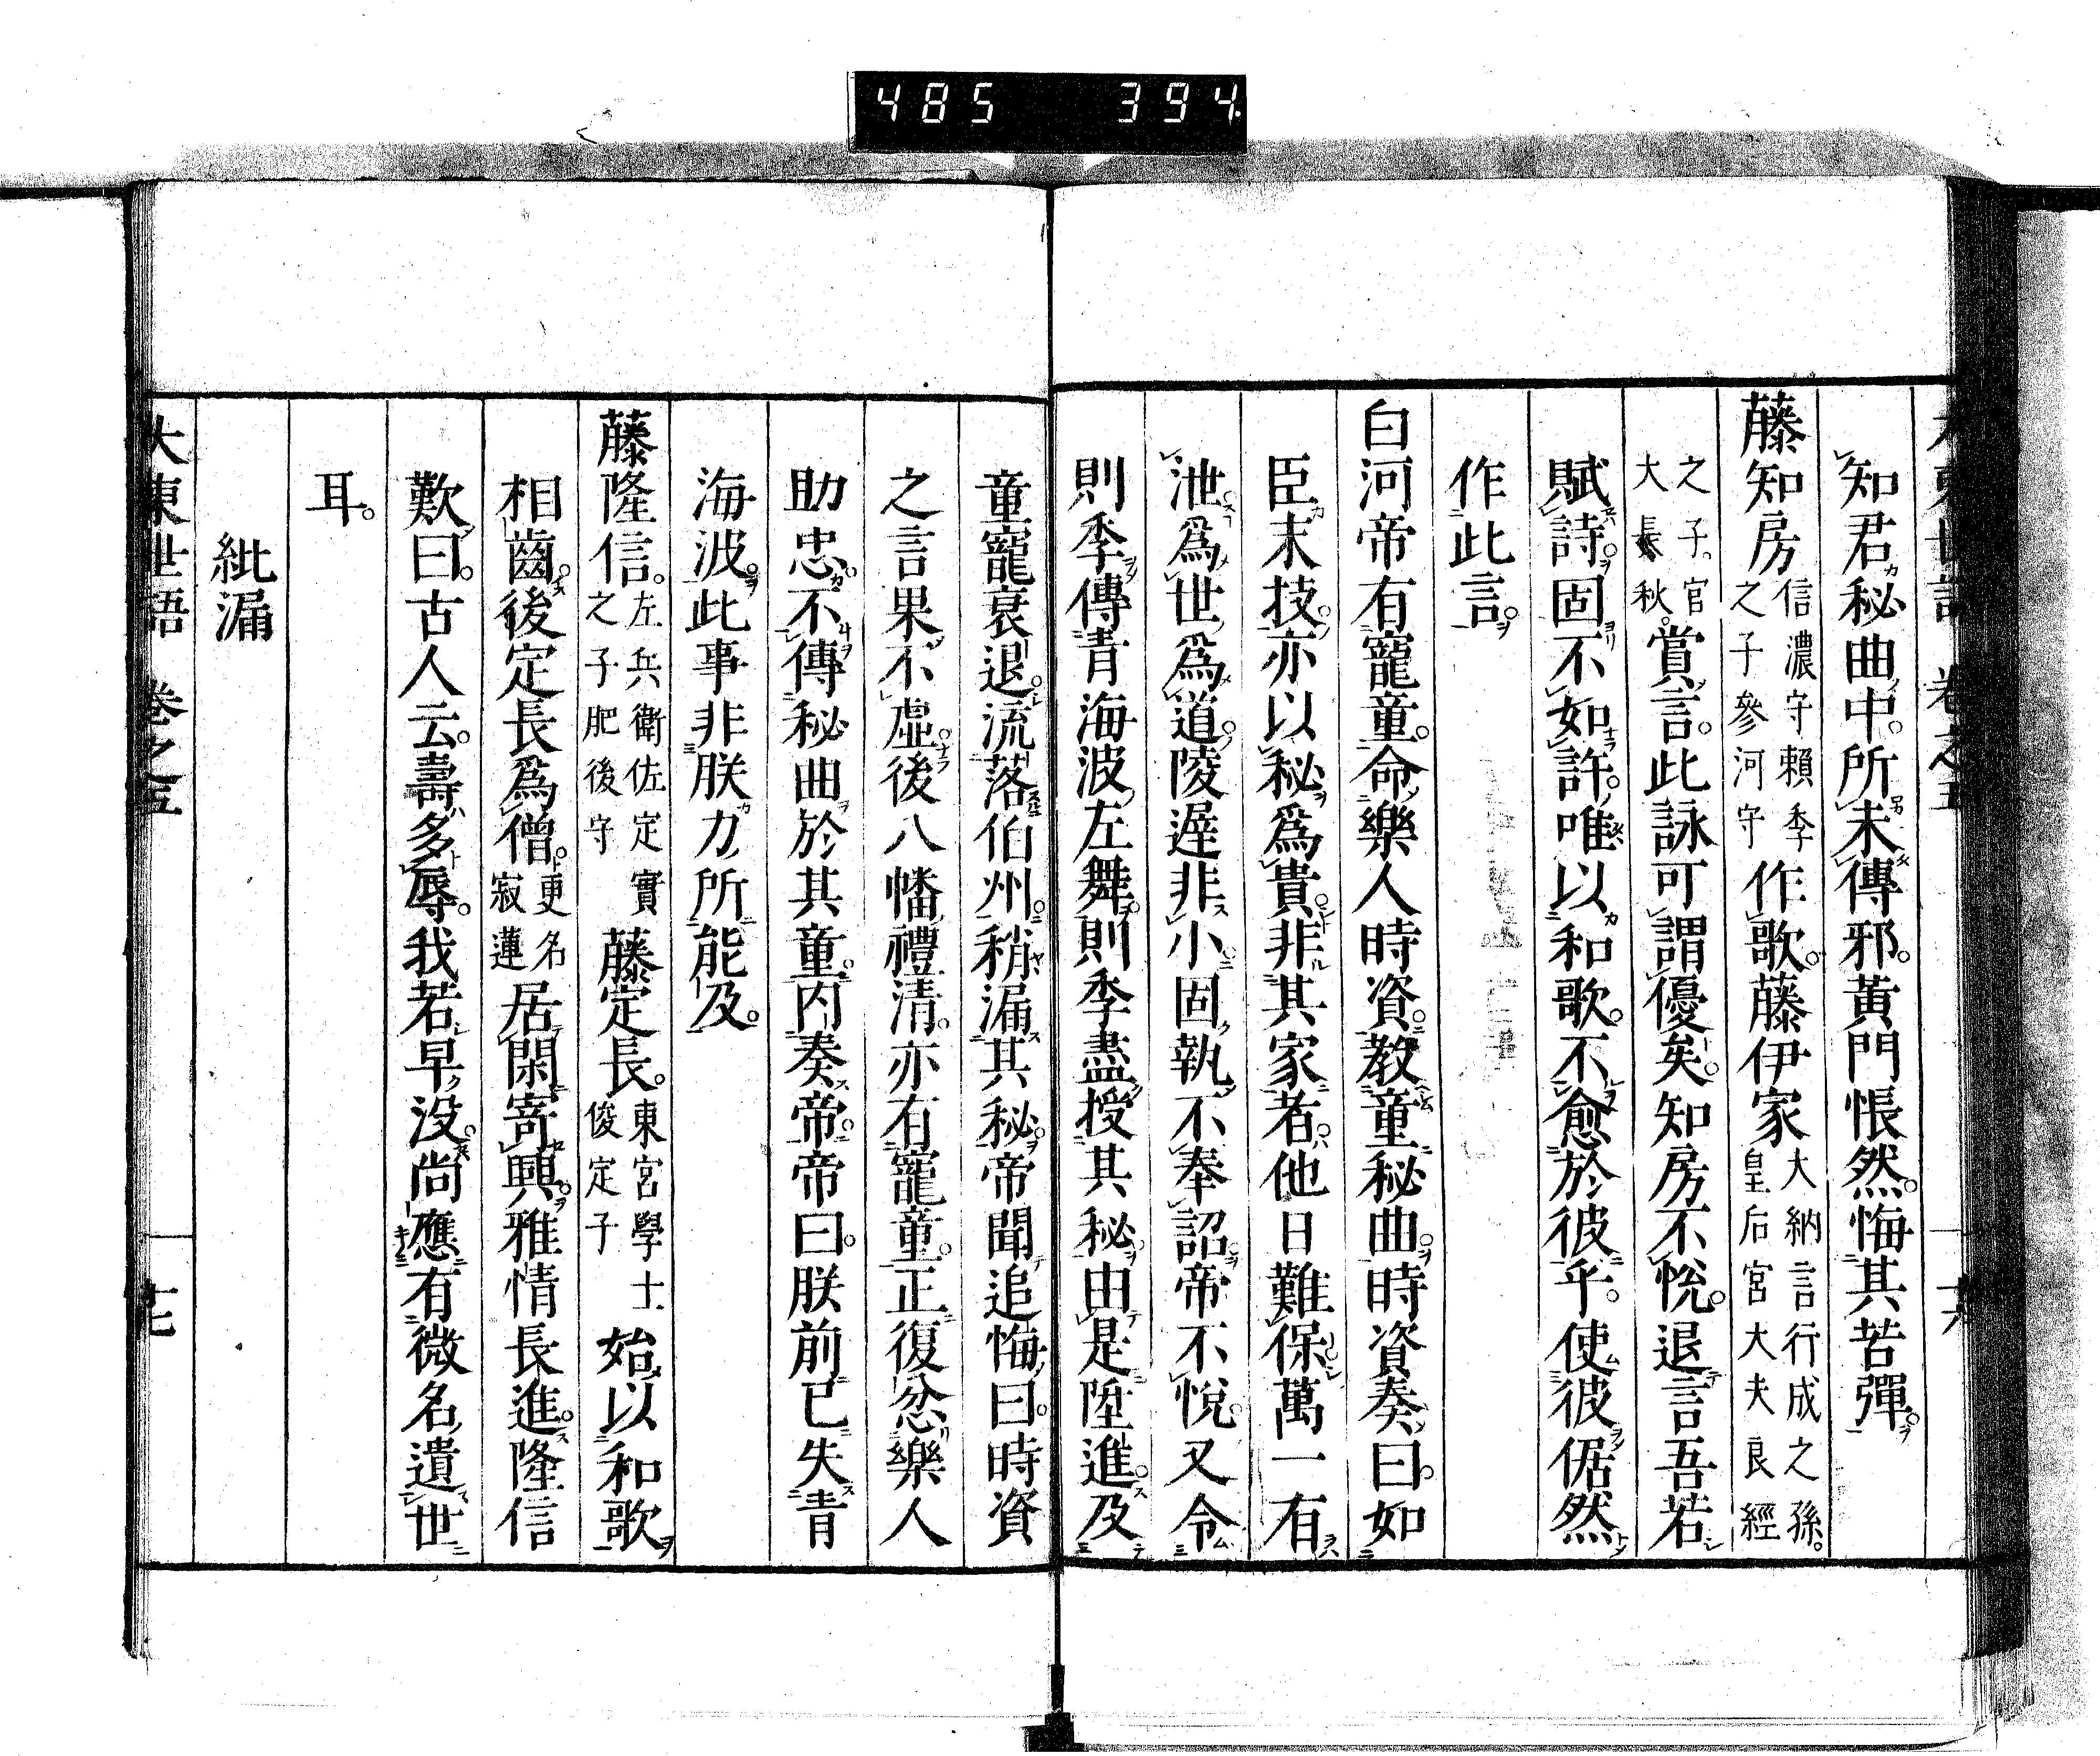 485 394
大東世語 卷之五 十六
知君秘曲中。所未傳邪。黃門悵然。悔其苦彈。
藤知房信濃守賴季之子參河守作歌。藤伊家大納言行成之孫。皇后宮大夫良經
之子。官大長秋。賞言。此詠可謂優矣。知房不悅。退言吾若
賦詩。固不如許。唯以和歌。不愈於彼乎。使彼倨然
作此言。
白河帝有寵童。命樂人時資。教童秘曲。時資奏曰。如
臣末技。亦以秘爲貴。非其家者。他日難保萬一有
泄。爲世爲道。陵遲非小。固執不奉詔。帝不悅。又令
則季傳青海波左舞。則季盡授其秘。由是陞進。及
童寵衰退。流落伯州。稍漏其秘。帝聞追悔曰。時資
之言果不虛。後八幡禮清。亦有寵童。正復忿樂人
助忠。不傳秘曲於其童。内奏帝。帝曰。朕前已失青
海波。此事非朕力所能及。
藤隆信。左兵衛佐定實之子肥後守藤定長。東宮學士俊定子始以和歌
相齒。後定長爲僧。更名寂蓮居閑寄興。雅情長進。隆信
歎曰。古人云。壽多辱。我若早没。尚應有微名遺世
耳。
紕漏
大東世語 卷之五 十七